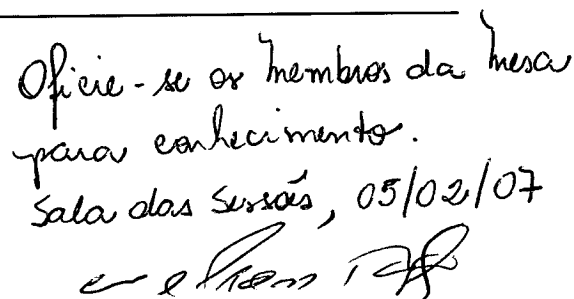 Oficie-se os membros da mesa
para conhecimento.
Sala das Sessões, 05/02/07